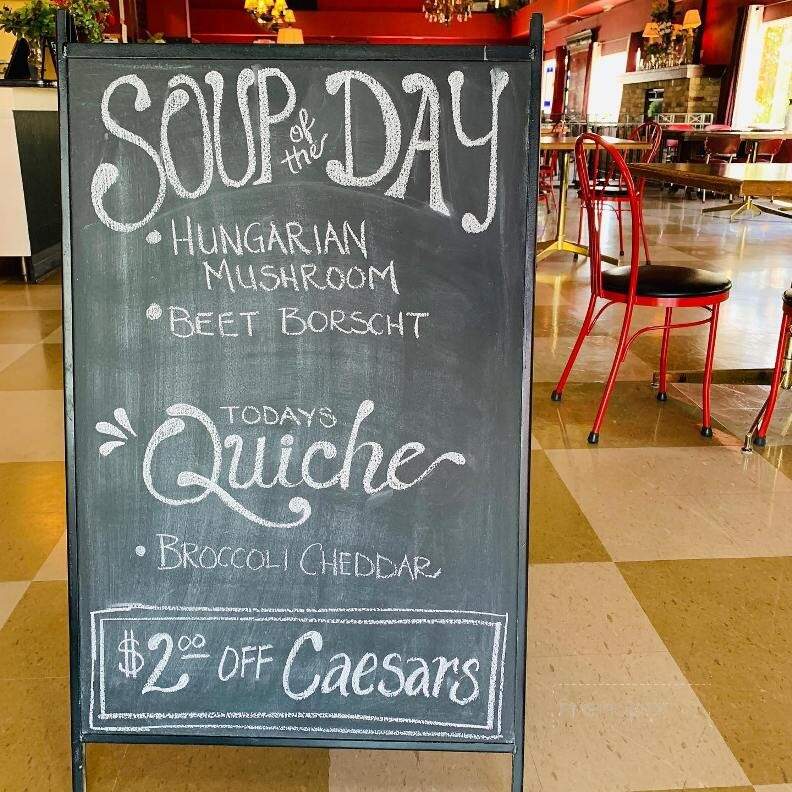 SOUP of the DAY
• HUNGARIAN
MUSHROOM
• BEET BORSCHT
TODAYS
Quiche
• BROCCOLI CHEDDAR
$2.00 OFF Caesars